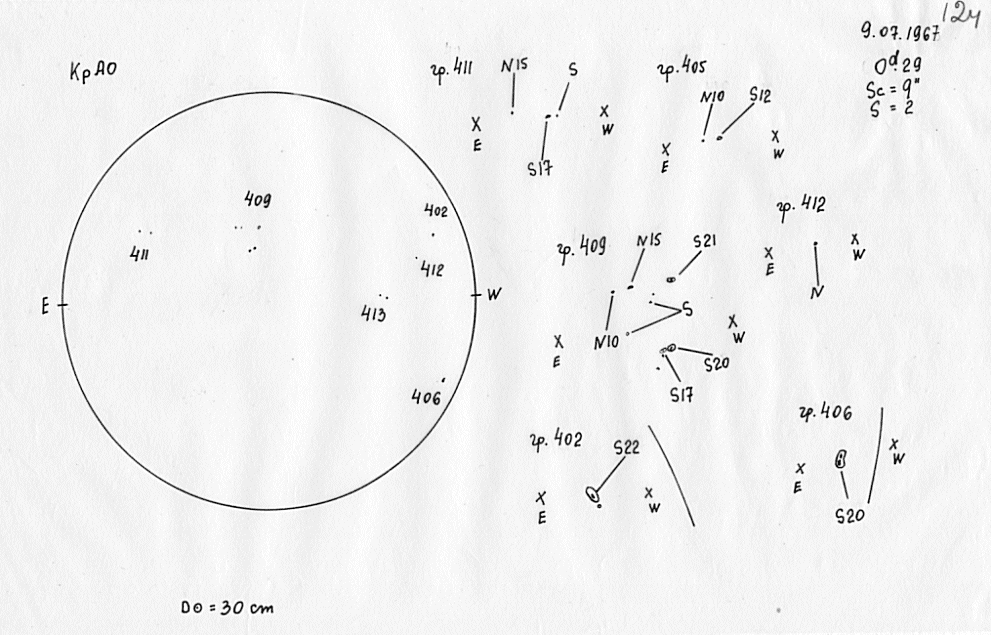 12ч
9.07.1967
0d.29
Sc = 9"
S = 2
КрАО
E
W
409
402
411
412
413
406
D⊙ = 30 cm
гр. 411
N15
S
S17
X
E
X
W
гр. 405
N10
S12
X
E
X
W
гр. 412
X
E
X
W
N
гр. 409
N15
S21
S
N10
X
E
X
W
S20
S17
гр. 402
S22
X
E
X
W
гр. 406
X
E
X
W
S20